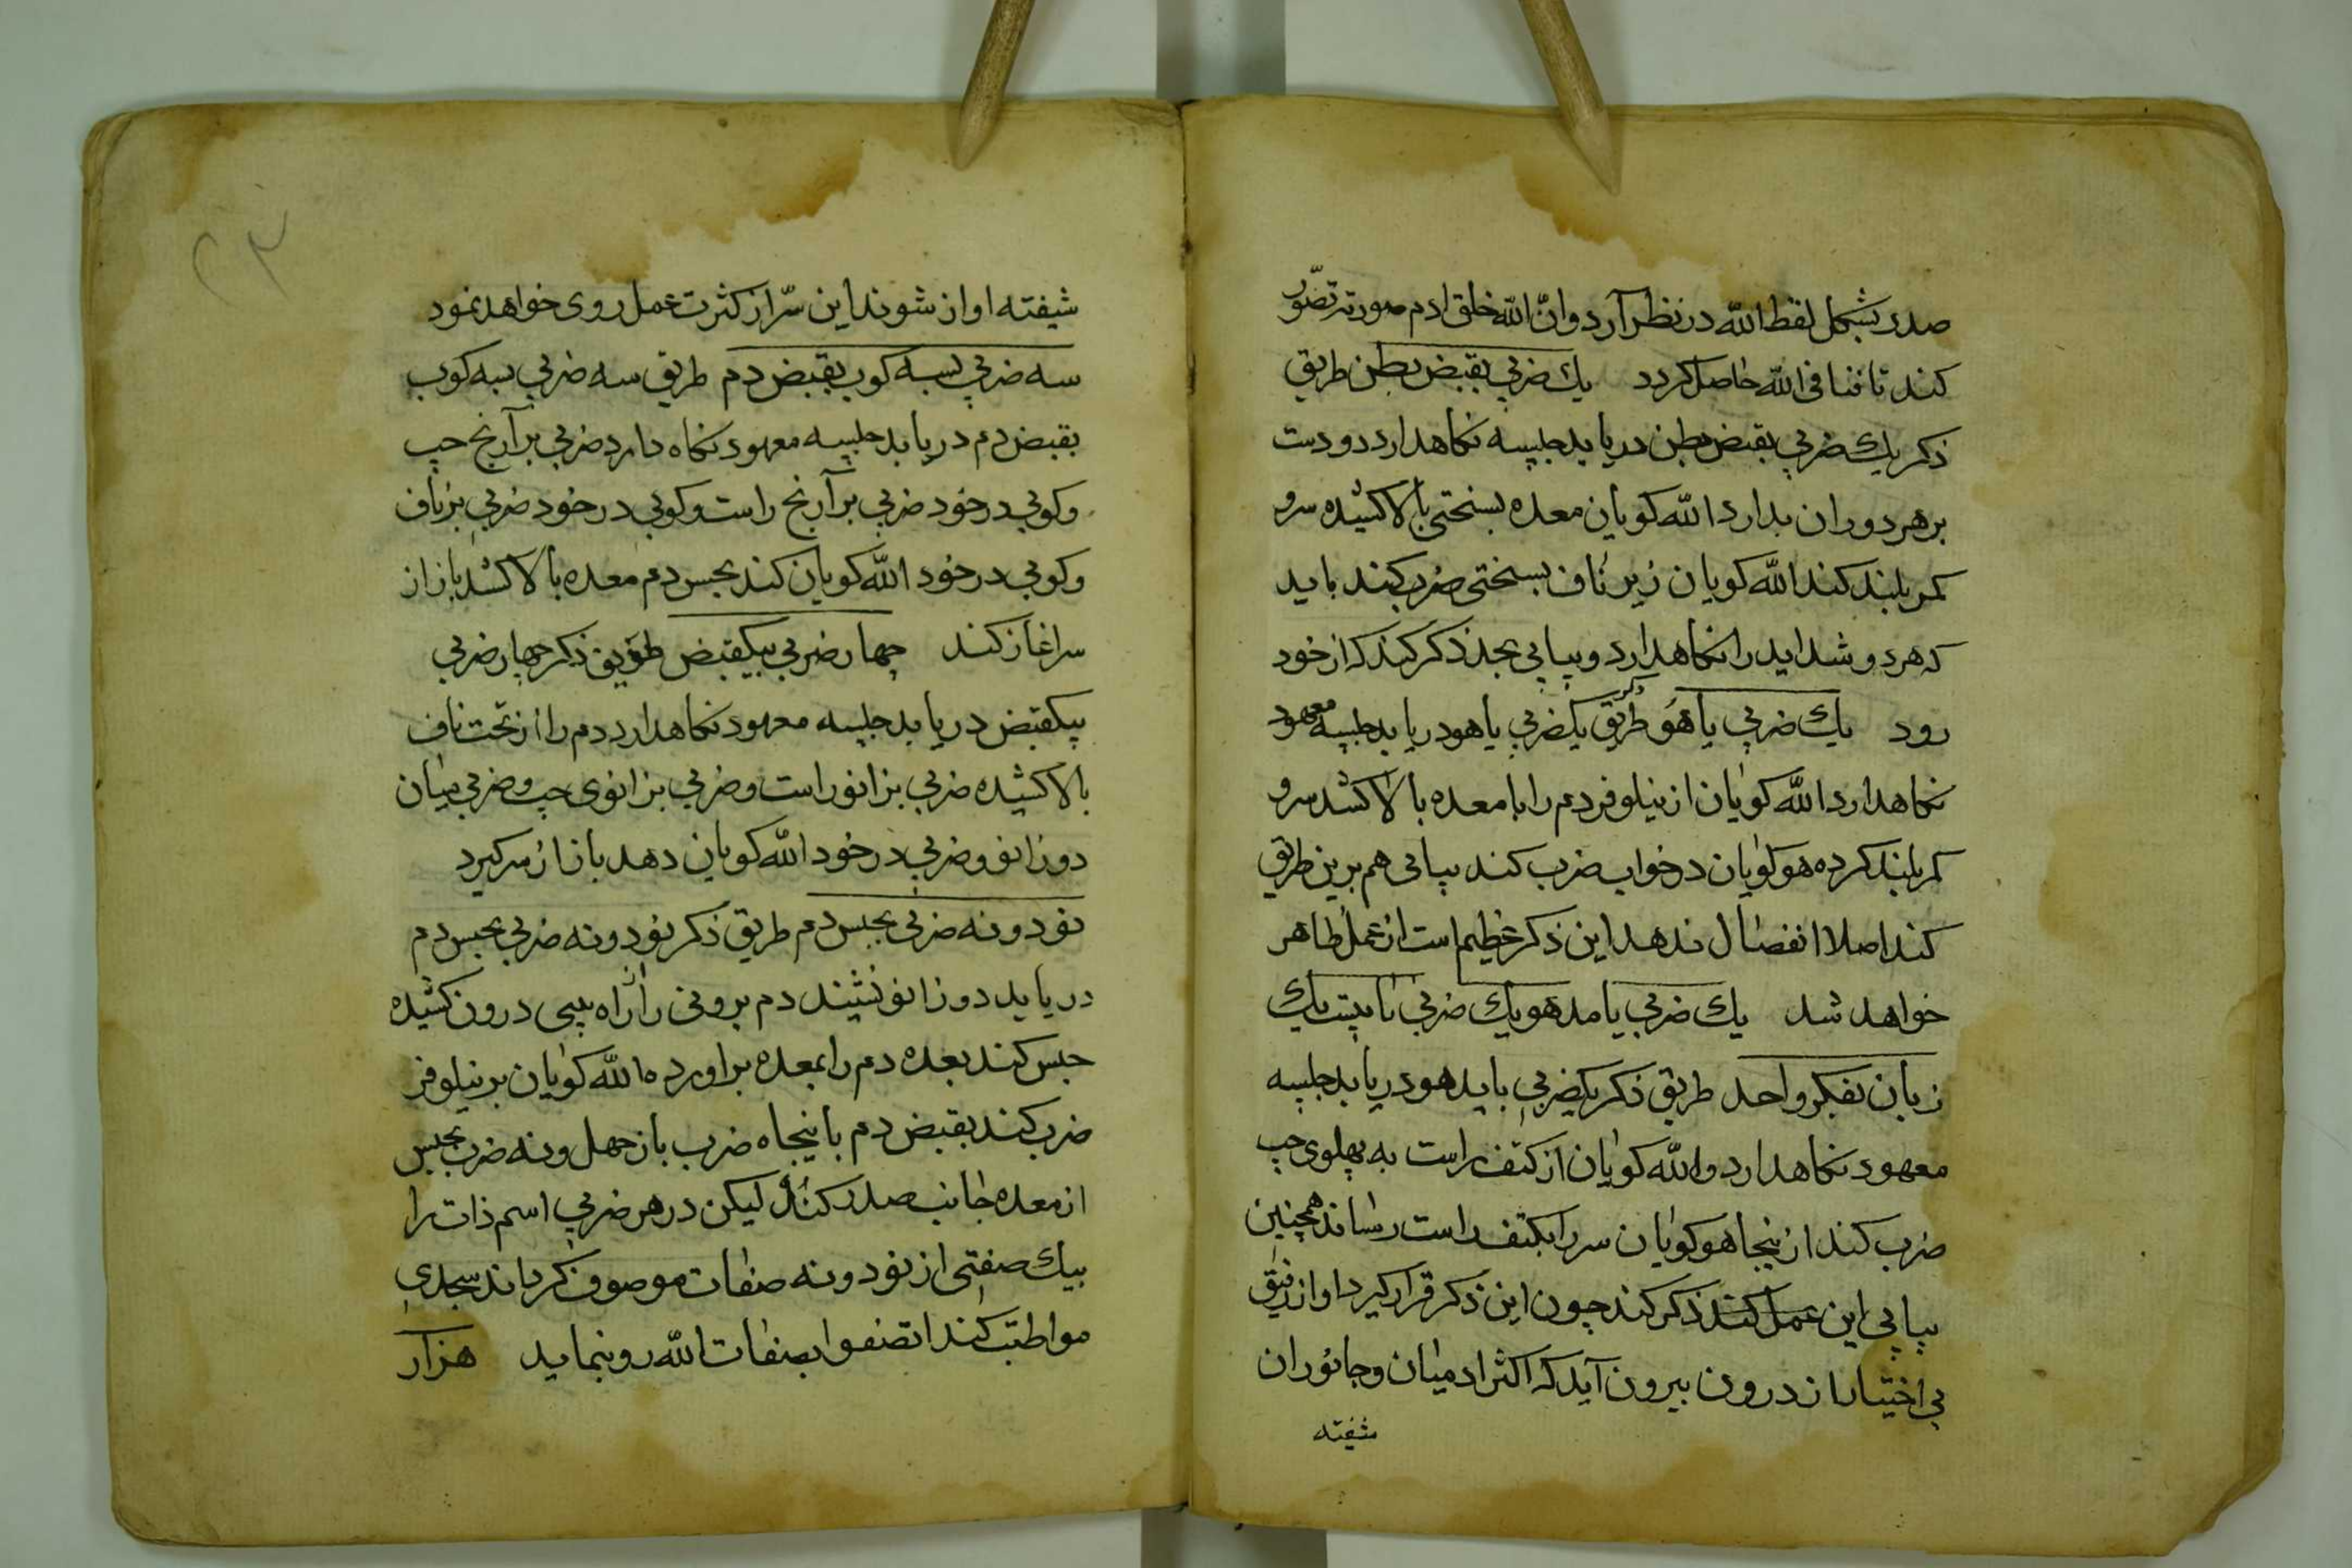 صدر بشکل لفظ الله در نظر آرد و انّ الله خلق ادم صورته تصّور
کند تا فنا فی الله حاصل کردد یك ضربي بقبض بطن طریق
ذکر یك ضربي بقبض بطن دریابد جلسه نکاهدارد دو دست
بر هر دو ران بدارد الله کویان معده بسختی بالا کشیده سر و
کمر بلند کند الله کویان زیر ناف بسختی ضرب کند باید
که هر دو شداید را نکاهدارد و پیاپي بجد ذکر کند که از خود
رود یك ضربي یا هو طریق ذکر یکضربي یا هو دریابد جلسه معهود
نکاهدارد الله کویان از نیلوفر دم را با معده بالا کشد سر و
کمر بلند کرده هو کویان در خواب ضرب کند پیاپی هم برین طریق
کند اصلا انفصال ندهد این ذکر عظیم است از عمل ظاهر
خواهد شد یك ضربي یا مد هو یك ضربي تا بیست یك
زبان بفکر واحد طریق ذکر یکضربي باید هو دریابد جلسه
معهود نکاهدارد و الله کویان از کتف راست به پهلوی چپ
ضرب کند از ینجا هو کویان سر را بکتف راست رساند همچنین
پیاپي این عمل کند ذکر کند چون این ذکر قرار کیرد اواز دقیق
بي اختیار از درون بیرون آید که اکثر ادمیان و جانوران
شیفته
شیفته اواز شوند این سّر از کثرت عمل روی خواهد نمود
سه ضربي بسه کوب بقبض دم طریق سه ضربي بسه کوب
بقبض دم دریابد جلسه معهود نکاه دارد ضربي بر آرنج چپ
و کوبي در خود ضربي بر آرنج راست و کوبي در خود ضربي بر ناف
و کوبي در خود الله کویان کند بحبس دم معده بالا کشد باز از
سر اغاز کند چهار ضربي بیکقبض طریق ذکر چهار ضربي
بیکقبض دریابد جلسه معهود نکاهدارد دم را از تحت ناف
بالا کشیده ضربي بزانو راست و ضربي بزانوی چپ و ضربي میان
دو زانو و ضربي در خود الله کویان دهد باز از سر کیرد
نود و نه ضربي بحبس دم طریق ذکر نود و نه ضربي بحبس دم
دریابد دو زانو نشیند دم بروني را از راه بیني درون کشیده
حبس کند بعده دم را بمعده براورده الله کویان بر نیلوفر
ضرب کند بقبض دم با پنجاه ضرب باز چهل و نه ضرب بحبس
از معده جانب صدر کند لیکن در هر ضربي اسم ذات را
بیك صفتی از نود و نه صفات موصوف کرداند بجدي
مواظبت کند اتصفوا بصفات الله رو بنماید هزار
۲۳